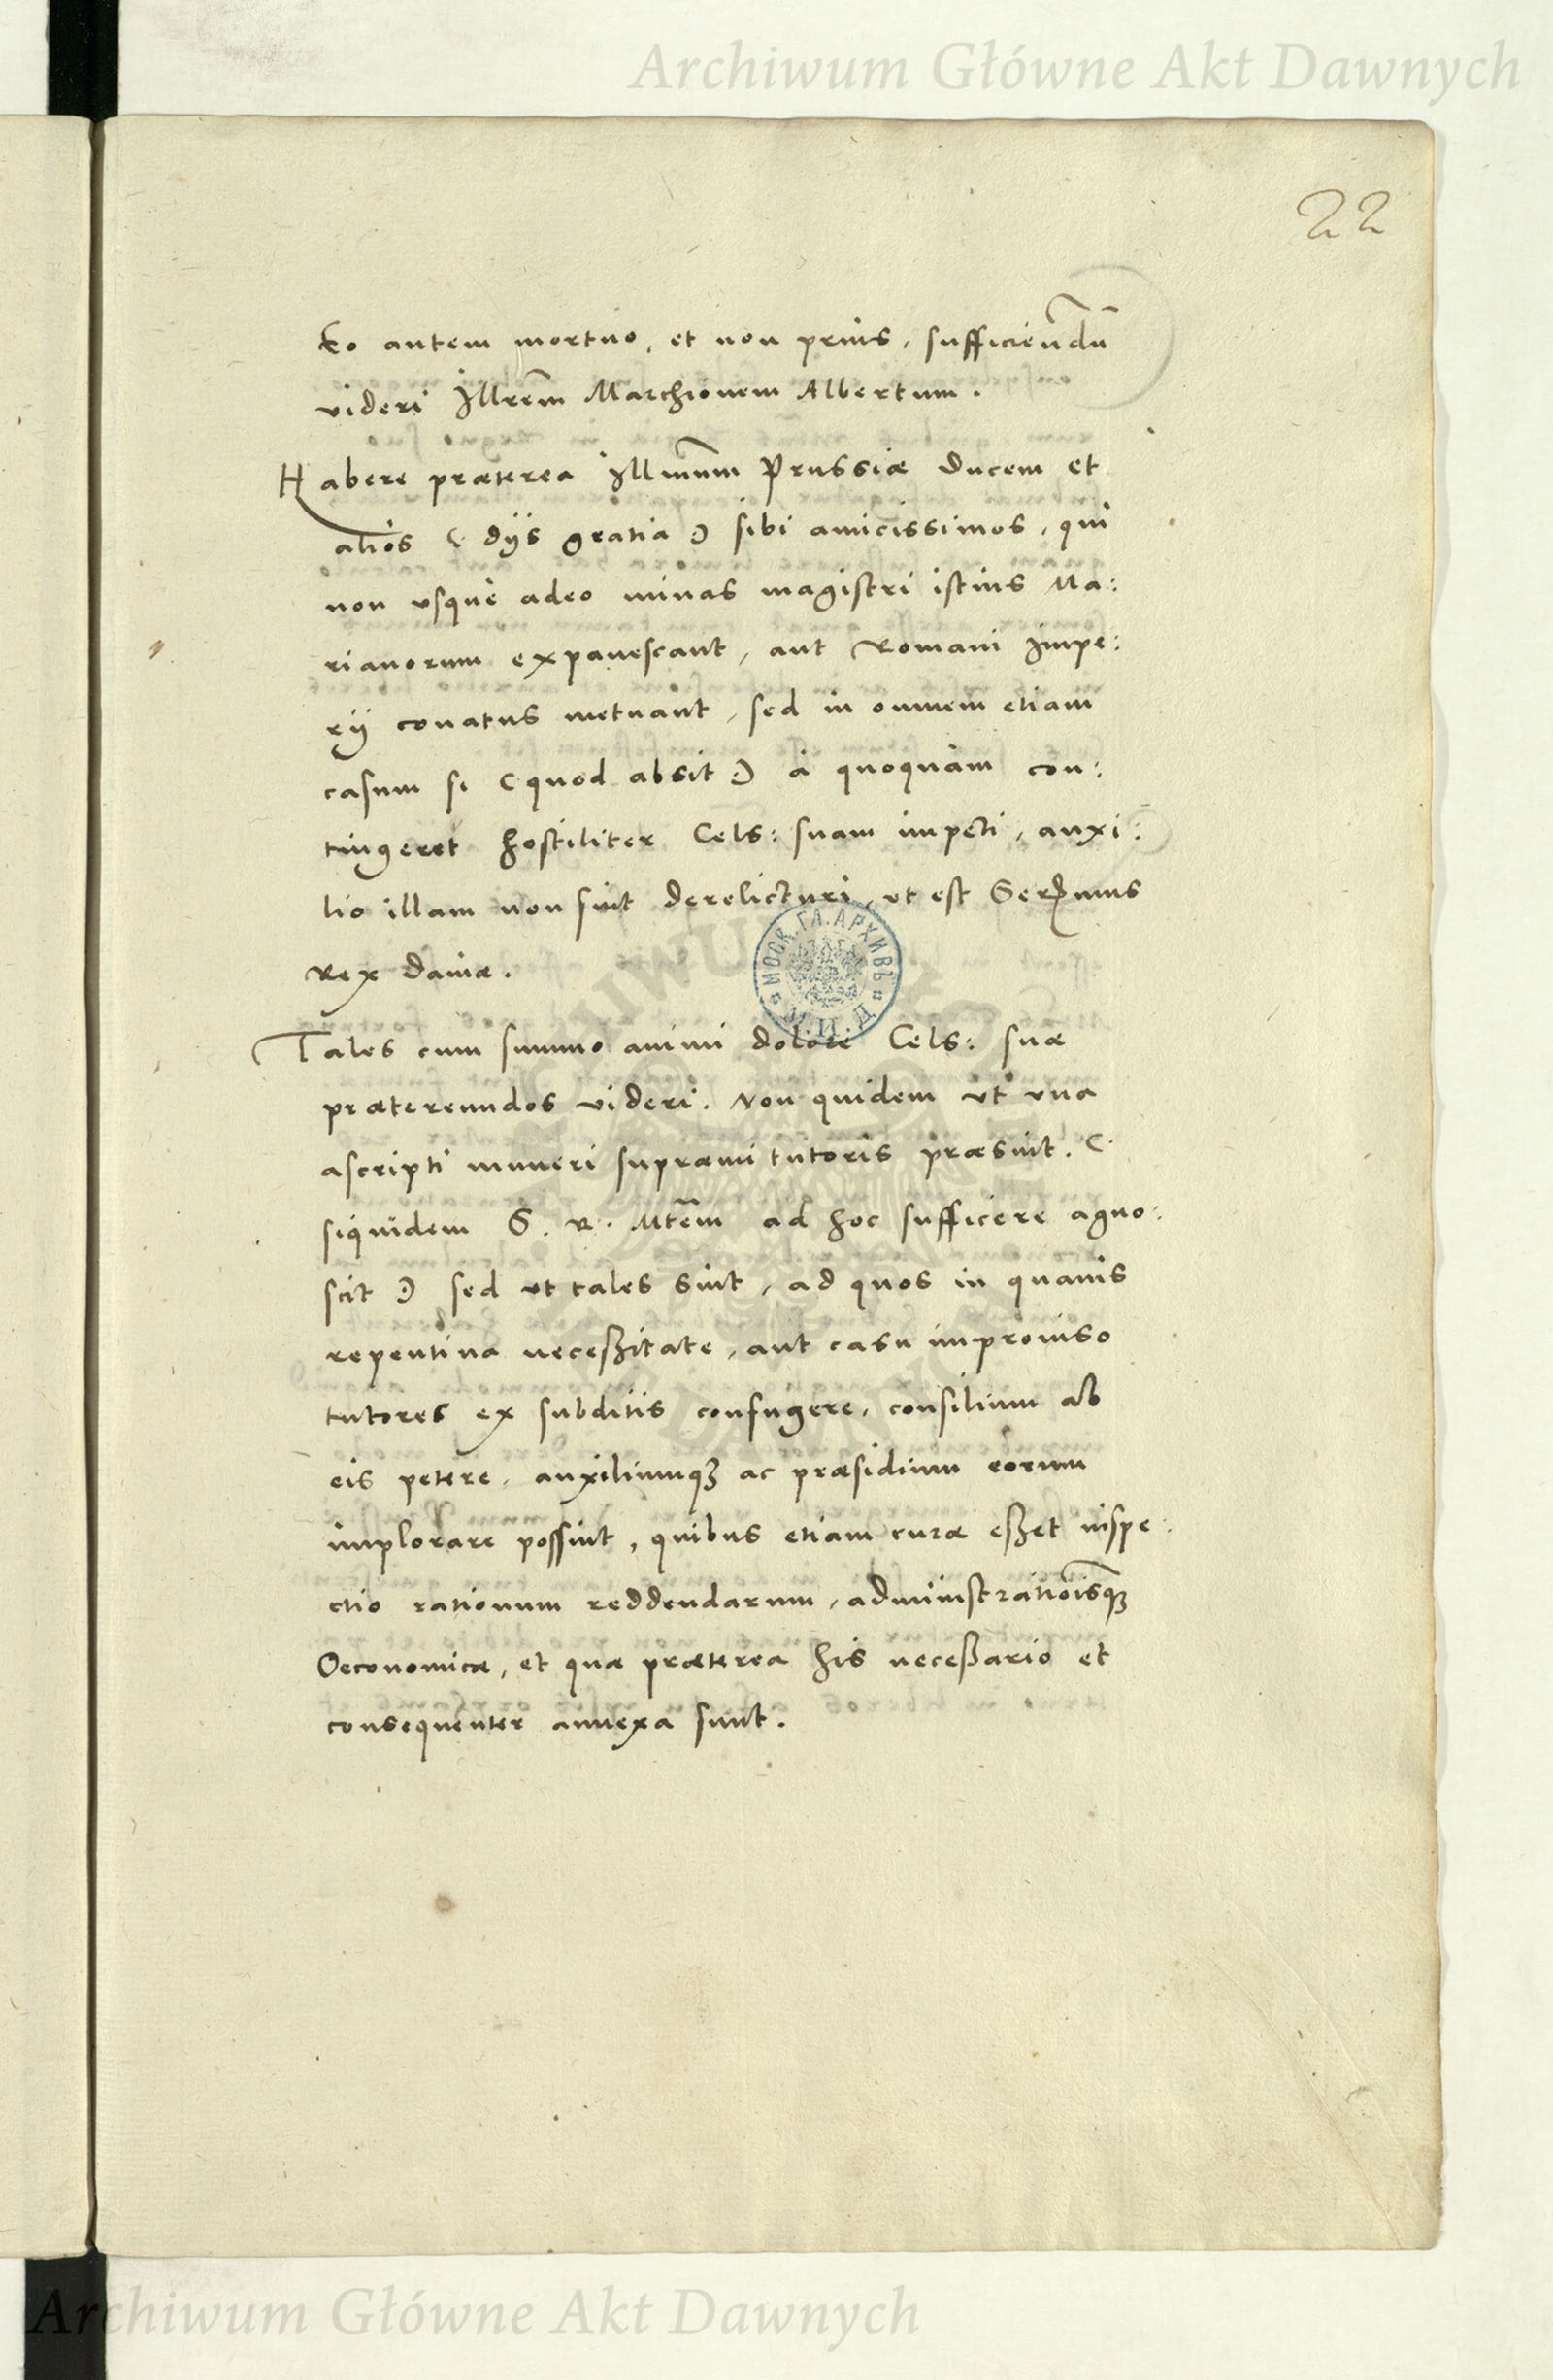 Archiwum Główne Akt Dawnych
22
Eo autem mortuo, et non prius, sufficiendū
videri Illrēm Marchionem Albertum.
Habere præterea Illmūm Prussiæ ducem et
alios ( dijs gratia ) sibi amicissimos, qui
non usque adeo minas magistri istius Ma:
rianorum expauescant, aut Romani Impe:
rij conatus metuant, sed in omnem etiam
casum si ( quod absit ) à quoquam con:
tingeret hostiliter Cels: suam impeti, auxi:
lio illam non sint derelicturi, ut est Serᵉnimus
Rex daniæ.
МОСК. ГЛ. АРХИВЪ М.И.Д.
Tales cum summo animi dolore Cels: suæ
prætereundos videri. Non quidem ut una
ascripti muneri supræmi tutoris præsint. (
siquidem S. R. Mtēm ad hoc sufficere agno:
scit ) sed ut tales sint, ad quos in quauis
repentina neceßitate, aut casu improuiso
tutores ex subditis confugere, consilium ab
eis petere, auxiliumqȝ ac præsidium eorum
implorare possint, quibus etiam curæ eßet inspe:
ctio rationum reddendarum, administratiōisqȝ
Oeconomicæ, et quæ præterea his neceßario et
consequenter annexa sunt.
Archiwum Główne Akt Dawnych